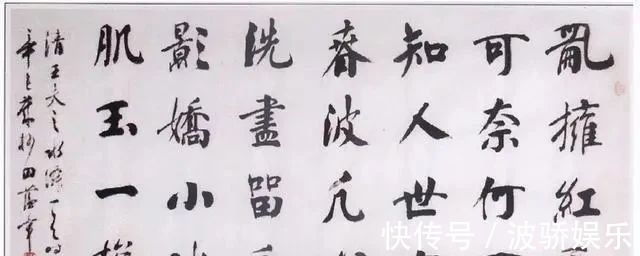 亂擁紅
可奈何
知人世
春波凡
洗盡留
影嬌小
肌玉一
清王夫之
田蘊章
快传号/波骄娱乐